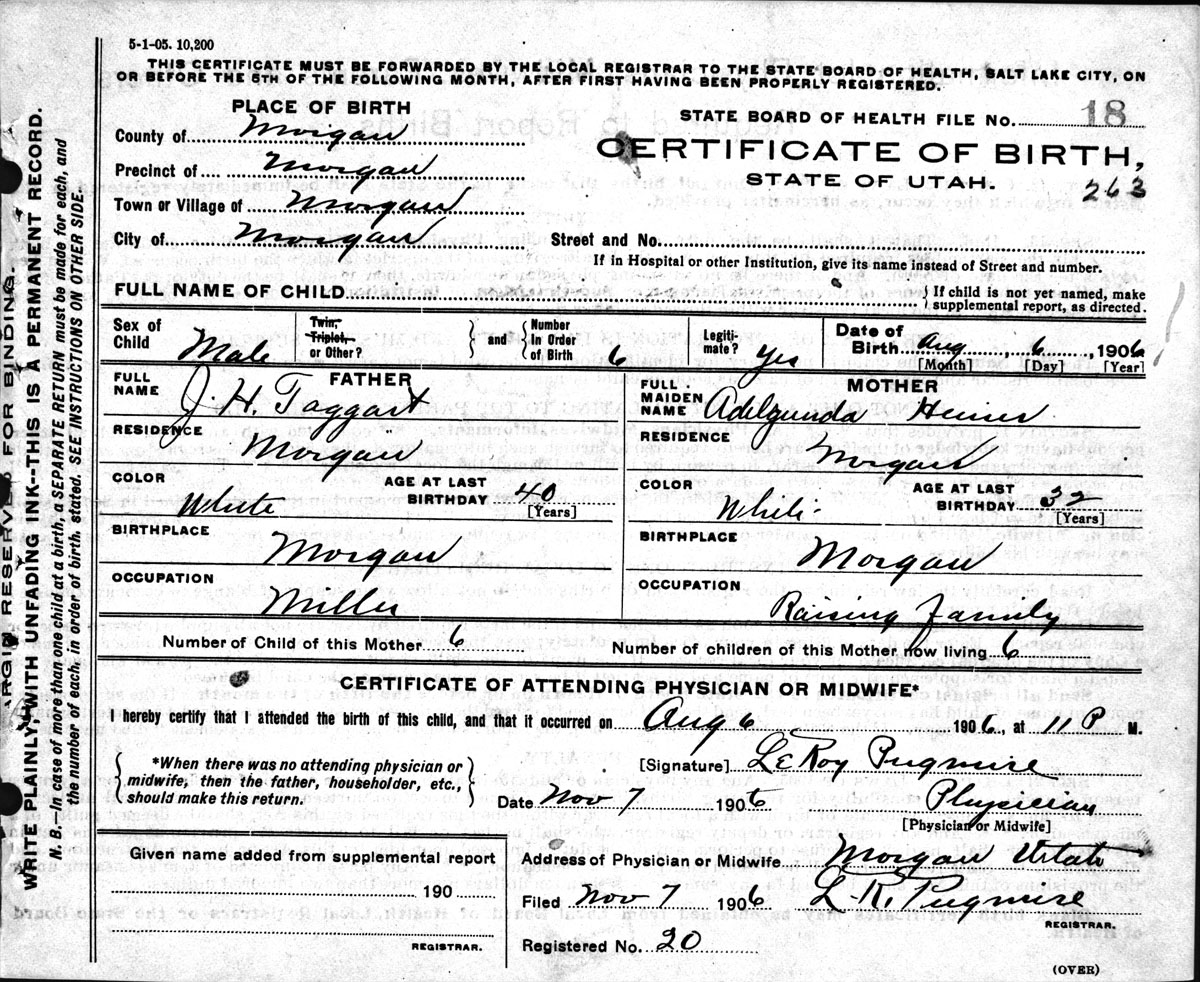 5-1-05. 10,200
THIS CERTIFICATE MUST BE FORWARDED BY THE LOCAL REGISTRAR TO THE STATE BOARD OF HEALTH, SALT LAKE CITY, ON
OR BEFORE THE 5TH OF THE FOLLOWING MONTH, AFTER FIRST HAVING BEEN PROPERLY REGISTERED.
PLACE OF BIRTH
County of Morgan
Precinct of Morgan
Town or Village of Morgan
City of Morgan
STATE BOARD OF HEALTH FILE NO. 18
CERTIFICATE OF BIRTH,
STATE OF UTAH.
263
Street and No.
If in Hospital or other Institution, give its name instead of Street and number.
FULL NAME OF CHILD
If child is not yet named, make
supplemental report, as directed.
Sex of Child Male
Twin, Triplet, or Other? and Number in Order of Birth 6
Legiti-mate? Yes
Date of Birth Aug 6, 1906
[Month] [Day] [Year]
FATHER
FULL NAME J. H. Taggart
RESIDENCE Morgan
COLOR White AGE AT LAST BIRTHDAY 40
[Years]
BIRTHPLACE Morgan
OCCUPATION Miller
MOTHER
FULL MAIDEN NAME Adelgunda Heiner
RESIDENCE Morgan
COLOR White AGE AT LAST BIRTHDAY 32
[Years]
BIRTHPLACE Morgan
OCCUPATION Raising Family
Number of Child of this Mother 6
Number of children of this Mother now living 6
CERTIFICATE OF ATTENDING PHYSICIAN OR MIDWIFE*
I hereby certify that I attended the birth of this child, and that it occurred on Aug 6 1906, at 11 P M.
*When there was no attending physician or
midwife, then the father, householder, etc.,
should make this return.
[Signature] LeRoy Pugmire
Date Nov 7 1906 Physician
[Physician or Midwife]
Given name added from supplemental report
190
REGISTRAR.
Address of Physician or Midwife Morgan Utah
Filed Nov 7 1906 L. R. Pugmire
REGISTRAR.
Registered No. 20
(OVER)
MARGIN RESERVED FOR BINDING.
WRITE PLAINLY, WITH UNFADING INK--THIS IS A PERMANENT RECORD.
N. B.—In case of more than one child at a birth, a SEPARATE RETURN must be made for each, and
the number of each, in order of birth, stated. SEE INSTRUCTIONS ON OTHER SIDE.